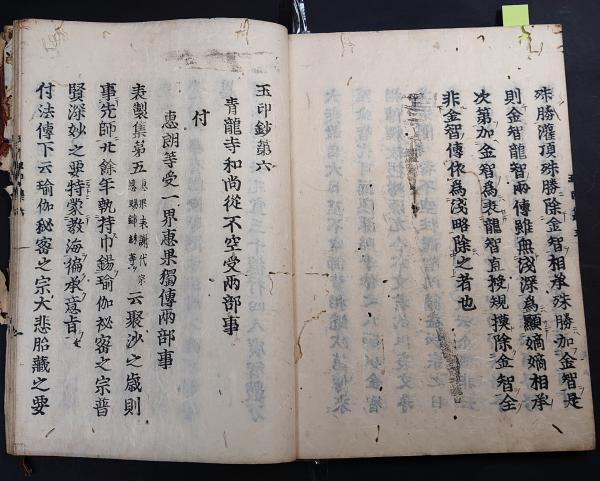 殊勝灌頂殊勝除金智相承殊勝加金智是
則金智龍智兩傳雖無淺深為顯嫡嫡相承
次第加金智為表龍智直授規摸除金智全
非金智傳依為淺略除之者也
玉印鈔第六
青龍寺和尚從不空受兩部事
付
惠朗等受一界惠果獨傳兩部事
表製集第五云聚沙之歲則
事先師廿餘年執持巾錫瑜伽祕密之宗普
賢深妙之要特蒙教誨徧承意旨
付法傳下云瑜伽祕密之宗大悲胎藏之要